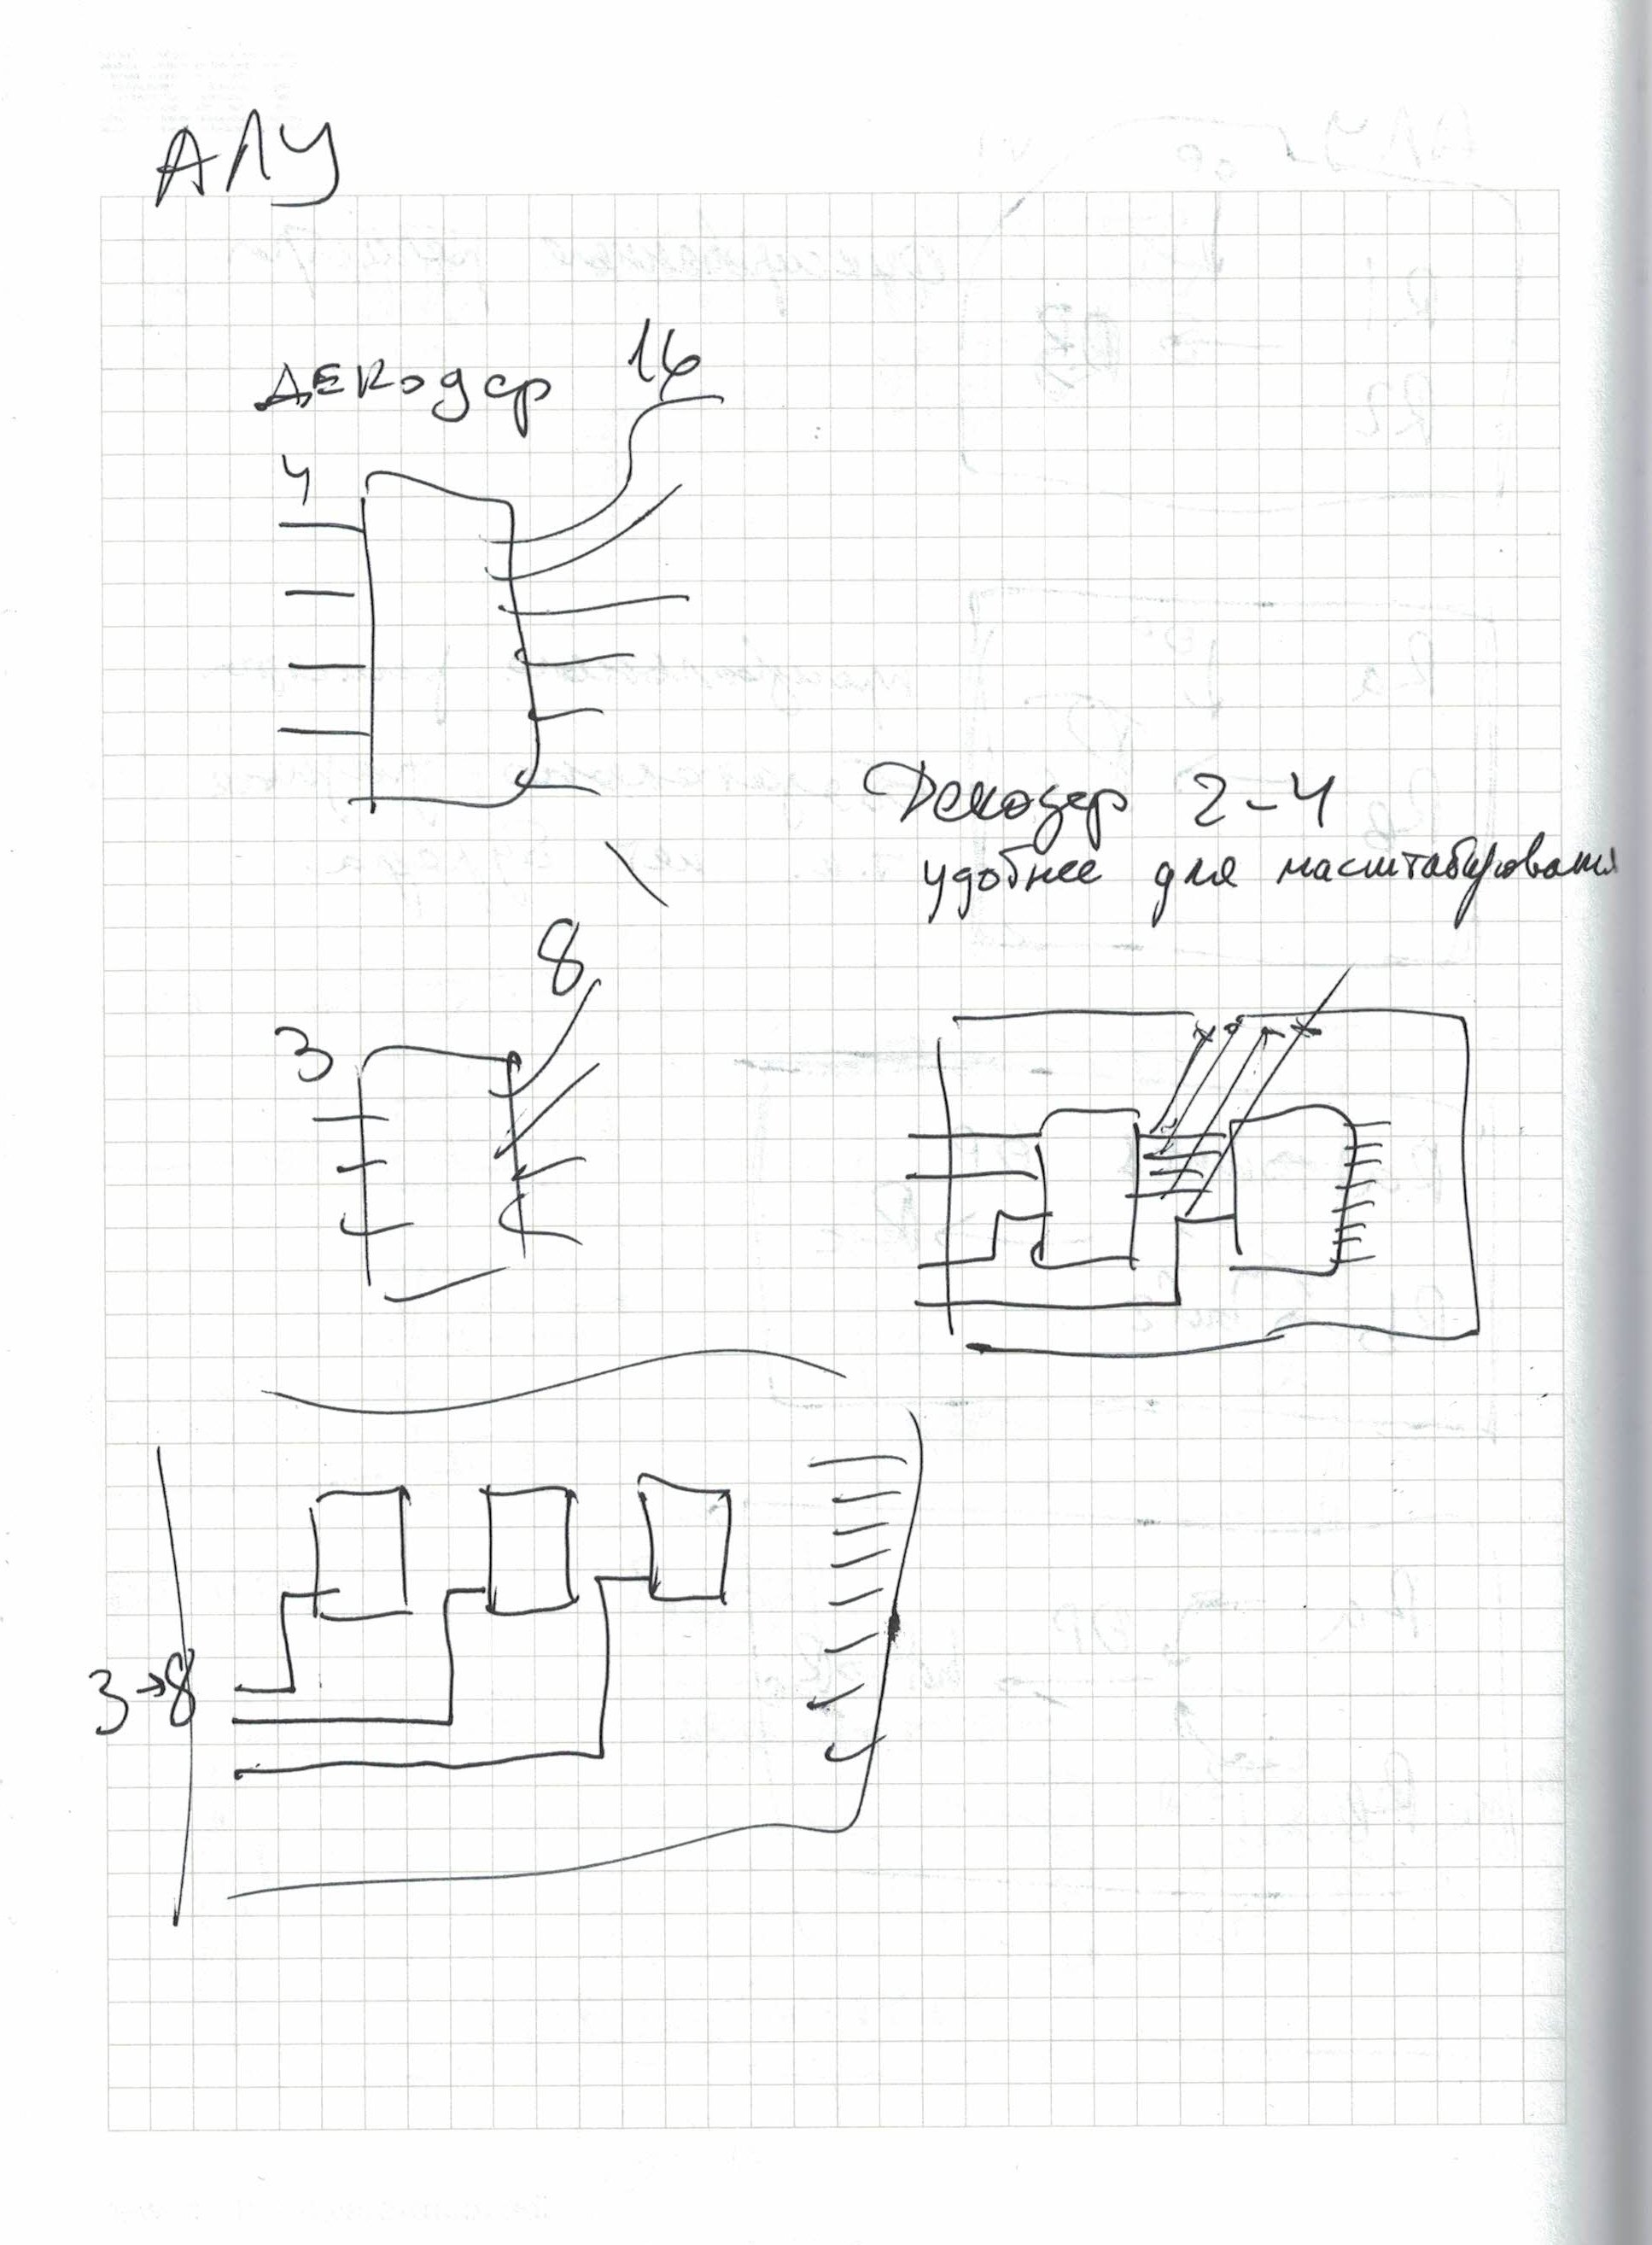 АЛУ
декодер 16
4
Декодер 2-4
удобнее для масштабирования
8
3
3→8